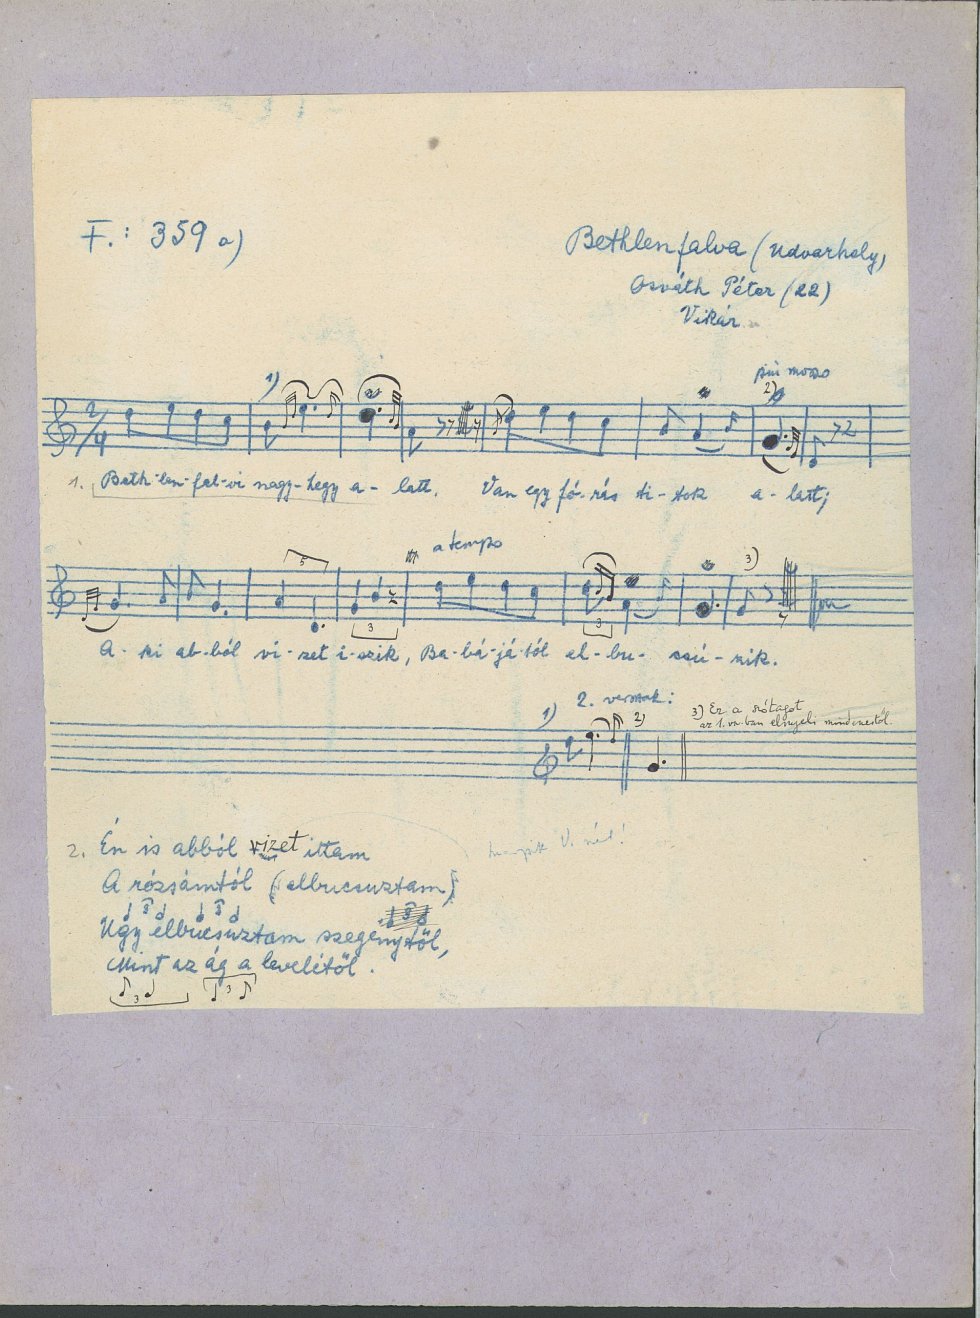 F.: 359 a)
Bethlenfalva (Udvarhely,
Osváth Péter (22)
Vikár
1) 2) più mosso
2/4
1. Beth-len-fal-vi nagy-hegy a-latt, Van egy fó-rás ti-tok a-latt;
5 a tempo 3)
3 3
A-ki ab-ból vi-zet i-szik, Ba-bá-já-tól el-bu-csú-zik.
2. versszak:
1) 2) 3) Ez a szótagot
az 1. vsz.ban elnyeli mindenestől.
2. Én is abból vizet ittam
A rózsámtól (elbucsuztam)
Ugy elbucsuztam szegénytől,
Mint az ág a levelétől.
3 3